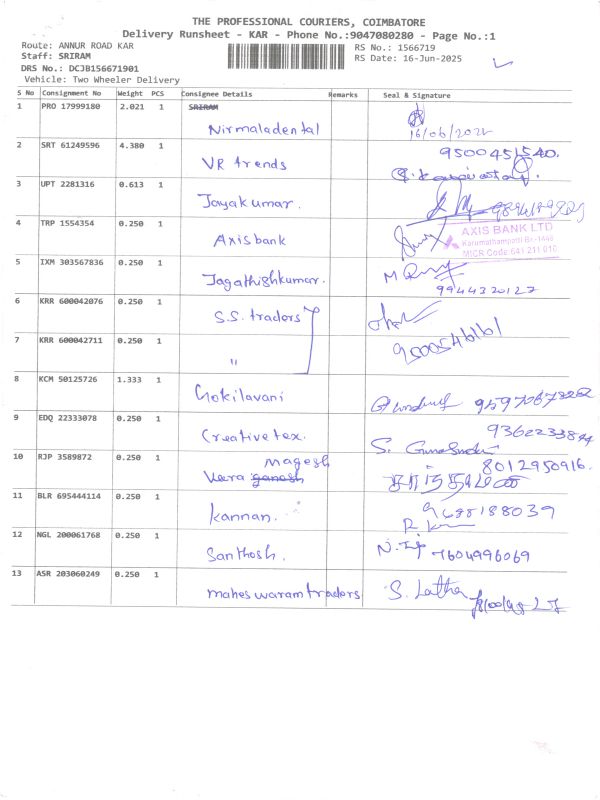 THE PROFESSIONAL COURIERS, COIMBATORE
Delivery Runsheet - KAR - Phone No.:9047080280 - Page No.:1
Route: ANNUR ROAD KAR
RS No.: 1566719
Staff: SRIRAM
RS Date: 16-Jun-2025
DRS No.: DCJB156671901
Vehicle: Two Wheeler Delivery
S No Consignment No Weight PCS Consignee Details Remarks Seal & Signature
1 PRO 17999180 2.021 1 SRIRAM
Nirmaladental
2 SRT 61249596 4.380 1
VR trends
3 UPT 2281316 0.613 1
Jayakumar.
4 TRP 1554354 0.250 1
Axisbank
AXIS BANK LTD
Karumathampatti Br.-1446
MICR Code 641 211 010
5 IXM 303567836 0.250 1
Jagathishkumar.
9944320127
6 KRR 600042076 0.250 1
S.S. traders
7 KRR 600042711 0.250 1
"
8 KCM 50125726 1.333 1
Gokilavani
9 EDQ 22333078 0.250 1
Creative tex.
10 RJP 3589872 0.250 1
Magesh
Veera ganesh
8012950916.
11 BLR 695444114 0.250 1
Kannan.
9688188039
12 NGL 200061768 0.250 1
Santhosh.
7604996069
13 ASR 203060249 0.250 1
maheswaram traders
S. Latha